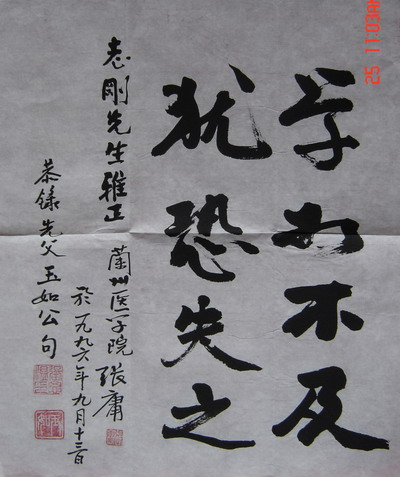 学如不及
犹恐失之
志剛先生雅正
蘭州医学院張庸
於一九九六年九月十三日
恭録先父玉如公句